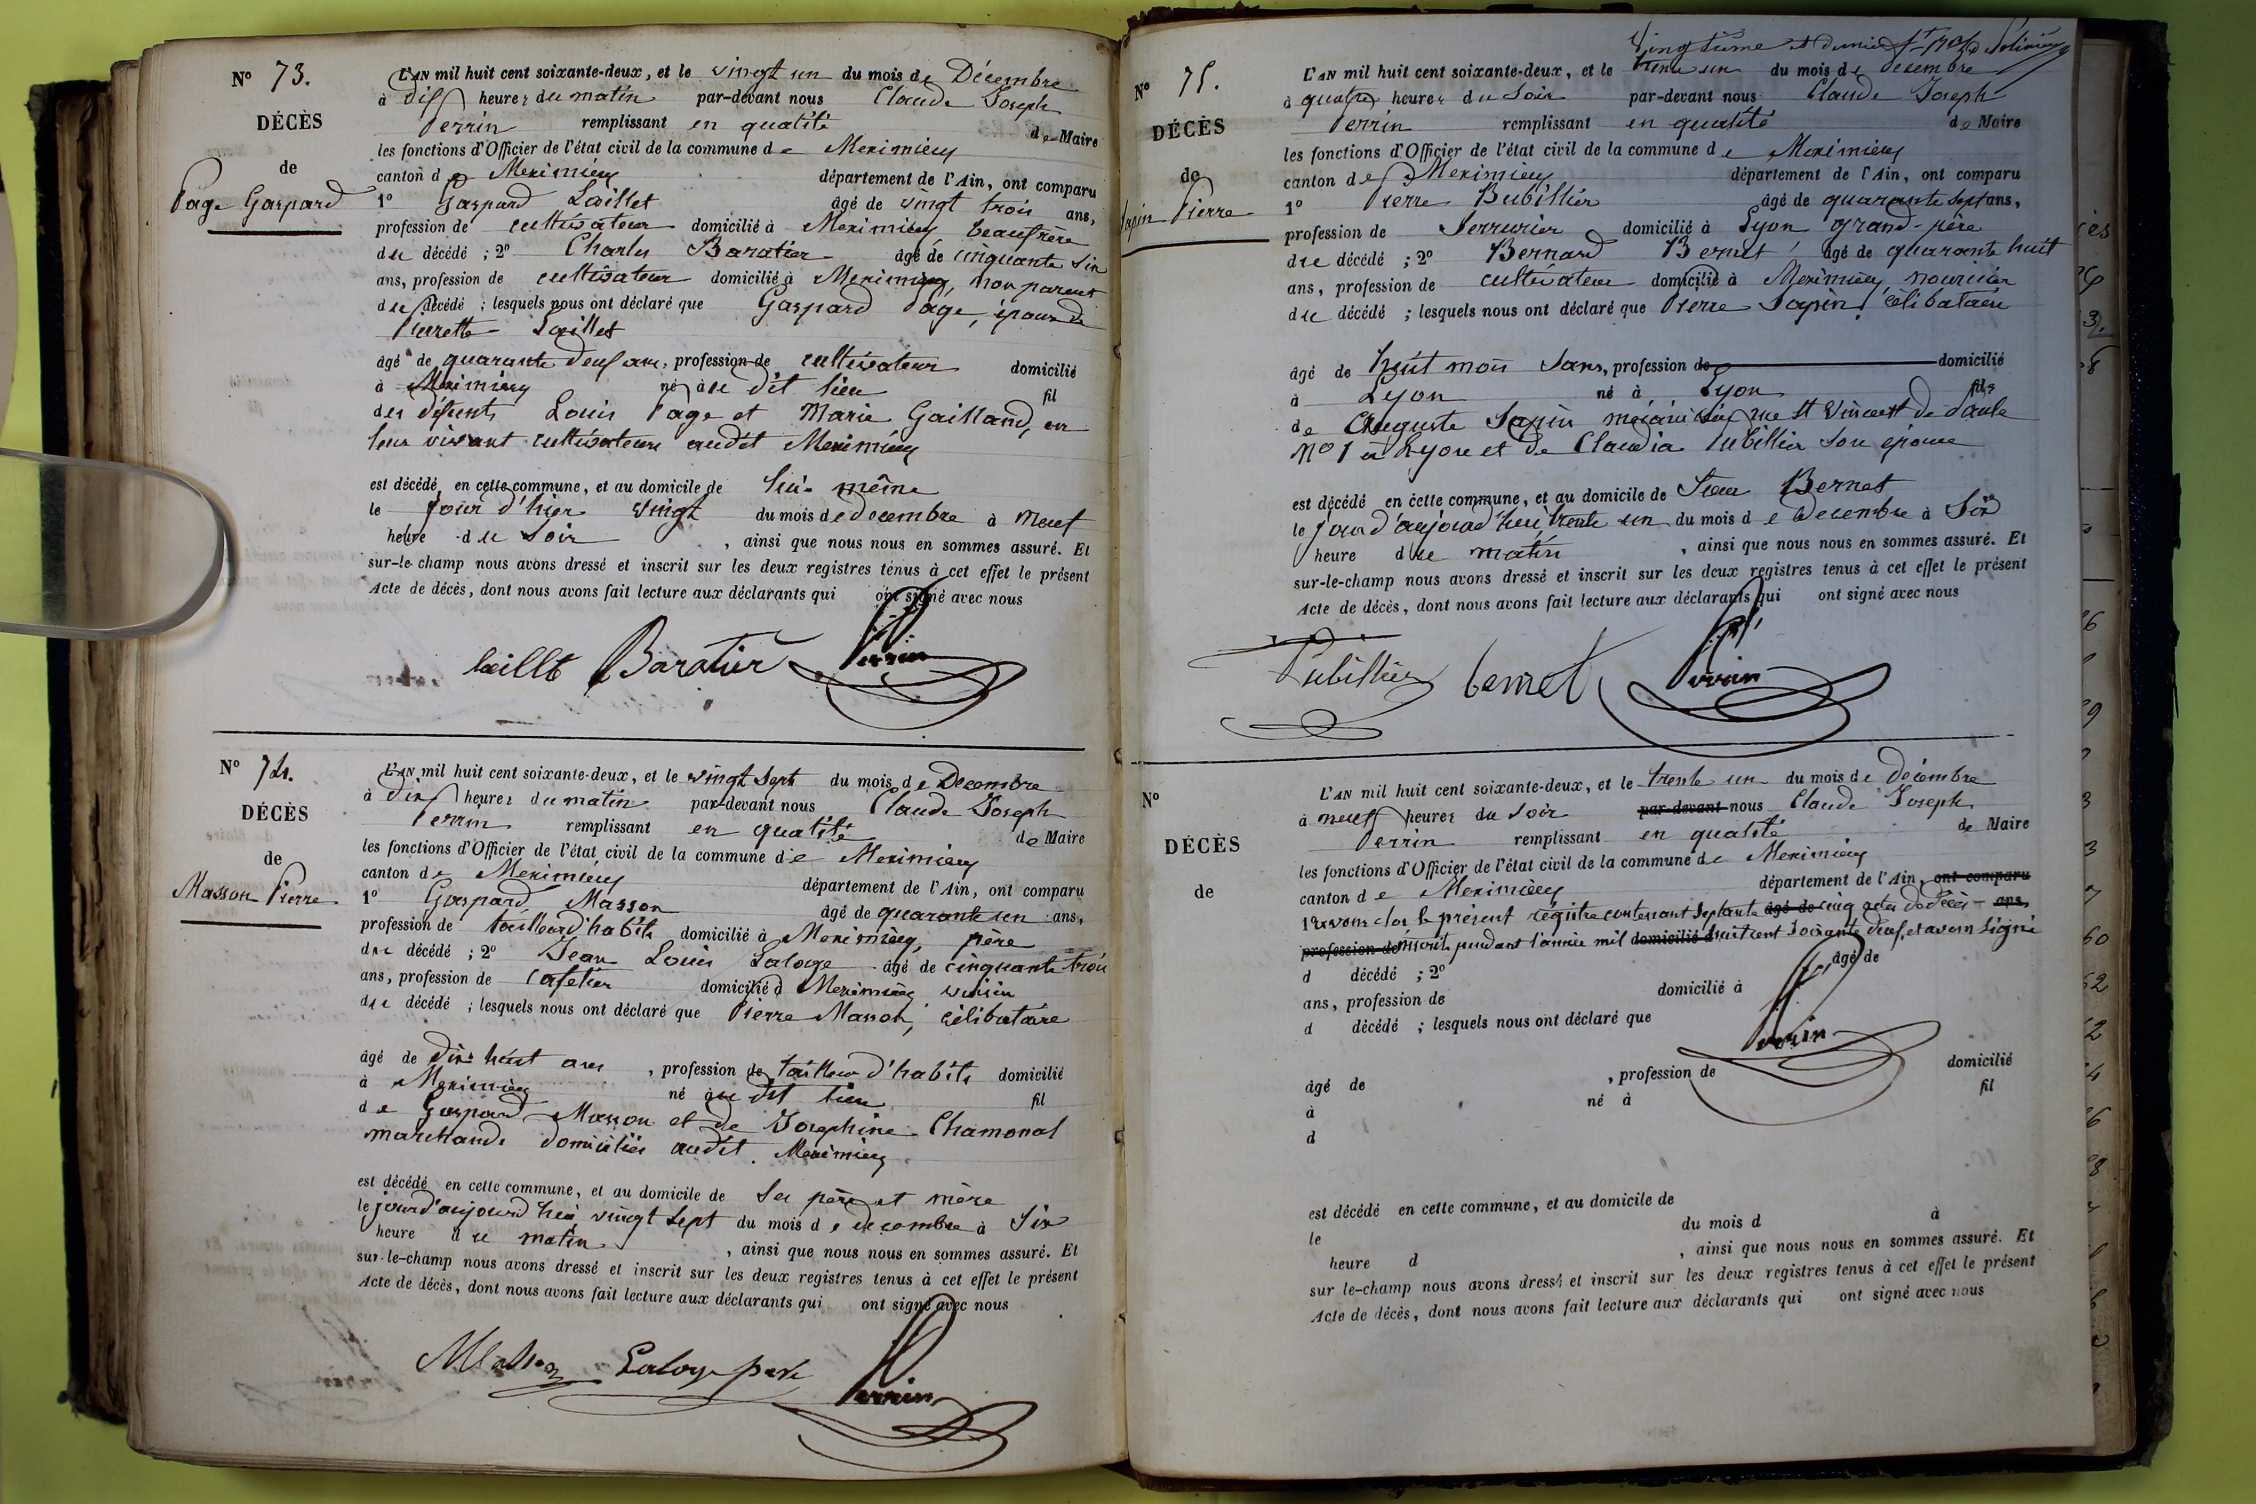 N° 73.
DÉCÈS
de
Page Gaspard
L'AN mil huit cent soixante-deux, et le vingt un du mois de Décembre
à dix heures du matin par-devant nous Claude Joseph
Perrin remplissant en qualité de Maire
les fonctions d'Officier de l'état civil de la commune de Meximieux
canton de Meximieux département de l'Ain, ont comparu
1° Gaspard Laillet âgé de vingt trois ans,
profession de cultivateur domicilié à Meximieux beaufrère
du décédé ; 2° Charles Baratier âgé de cinquante six
ans, profession de cultivateur domicilié à Meximieux, non parent
du décédé ; lesquels nous ont déclaré que Gaspard Page, époux de
Pierrette Laillet
âgé de quarante deux ans, profession de cultivateur domicilié
à Meximieux né au dit lieu fil
des défunts Louis Page et Marie Gailland, en
leur vivant cultivateurs audit Meximieux
est décédé en cette commune, et au domicile de lui-même
le jour d'hier vingt du mois de decembre à neuf
heure du soir , ainsi que nous nous en sommes assuré. Et
sur-le-champ nous avons dressé et inscrit sur les deux registres tenus à cet effet le présent
Acte de décès, dont nous avons fait lecture aux déclarants qui ont signé avec nous
laillet Baratier Perrin
N° 74.
DÉCÈS
de
Masson Pierre
L'AN mil huit cent soixante-deux, et le vingt sept du mois de Decembre
à dix heures du matin par-devant nous Claude Joseph
Perrin remplissant en qualité de Maire
les fonctions d'Officier de l'état civil de la commune de Meximieux
canton de Meximieux département de l'Ain, ont comparu
1° Gaspard Masson âgé de quarante un ans,
profession de tailleur d'habits domicilié à Meximieux, père
du décédé ; 2° Jean Louis Laloge âgé de cinquante trois
ans, profession de cafetier domicilié à Meximieux voisin
du décédé ; lesquels nous ont déclaré que Pierre Masson, célibataire
âgé de dix huit ans , profession de tailleur d'habits domicilié
à Meximieux né au dit lieu fil
de Gaspard Masson et de Josephine Chamonal
marchands domiciliés audit Meximieux
est décédé en cette commune, et au domicile de ses père et mère
le jour d'aujourd'hui vingt sept du mois de decembre à six
heure du matin , ainsi que nous nous en sommes assuré. Et
sur-le-champ nous avons dressé et inscrit sur les deux registres tenus à cet effet le présent
Acte de décès, dont nous avons fait lecture aux déclarants qui ont signé avec nous
Masson Laloge père Perrin
Vingtième et dernier
N° 75.
DÉCÈS
de
Sapin Pierre
L'AN mil huit cent soixante-deux, et le trente un du mois de décembre
à quatre heures du soir par-devant nous Claude Joseph
Perrin remplissant en qualité de Maire
les fonctions d'Officier de l'état civil de la commune de Meximieux
canton de Meximieux département de l'Ain, ont comparu
1° Pierre Bubillier âgé de quarante sept ans,
profession de serrurier domicilié à Lyon grand-père
du décédé ; 2° Bernard Bernet âgé de quarante huit
ans, profession de cultivateur domicilié à Meximieux nourricier
du décédé ; lesquels nous ont déclaré que Pierre Sapin, célibataire
âgé de huit mois sans, profession de domicilié
à Lyon né à Lyon fils
de Auguste Sapin mécanicien rue St Vincent de Paule
N° 1 à Lyon et de Claudia Bubillier son épouse
est décédé en cette commune, et au domicile de Sieur Bernet
le jour d'aujourd'hui trente un du mois de decembre à six
heure du matin , ainsi que nous nous en sommes assuré. Et
sur-le-champ nous avons dressé et inscrit sur les deux registres tenus à cet effet le présent
Acte de décès, dont nous avons fait lecture aux déclarants qui ont signé avec nous
Pubillier bernet Perrin
N°
DÉCÈS
de
L'AN mil huit cent soixante-deux, et le trente un du mois de décembre
à neuf heures du soir par-devant nous Claude Joseph
Perrin remplissant en qualité de Maire
les fonctions d'Officier de l'état civil de la commune de Meximieux
canton de Meximieux département de l'Ain, ont comparu
avons clos le présent régistre contenant septante âgé de cinq actes de décès ans,
profession de inscrits pendant l'année mil domicilié à huit cent soixante deux, et avons signé
d décédé ; 2° âgé de
ans, profession de domicilié à
d décédé ; lesquels nous ont déclaré que
Perrin
âgé de , profession de domicilié
à né à fil
d
est décédé en cette commune, et au domicile de
le du mois d à
heure d , ainsi que nous nous en sommes assuré. Et
sur le-champ nous avons dressé et inscrit sur les deux registres tenus à cet effet le présent
Acte de décès, dont nous avons fait lecture aux déclarants qui ont signé avec nous